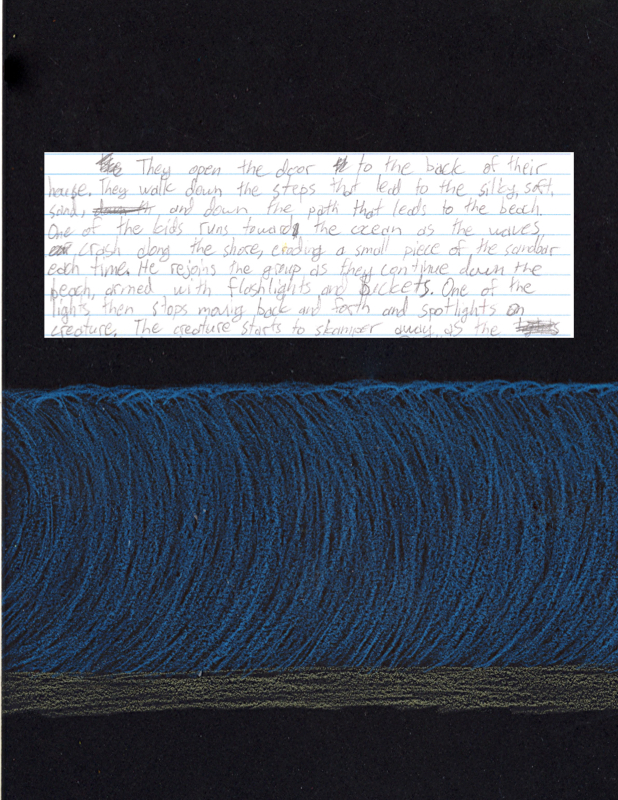 They open the door to the back of their
house. They walk down the steps that lead to the silky, soft,
sand, and down the path that leads to the beach.
One of the kids runs towards the ocean as the waves
crash along the shore, eroding a small piece of the sandbar
each time. He rejoins the group as they continue down the
beach, armed with flashlights and buckets. One of the
lights then stops moving back and forth and spotlights on
creature. The creature starts to skamper away as the